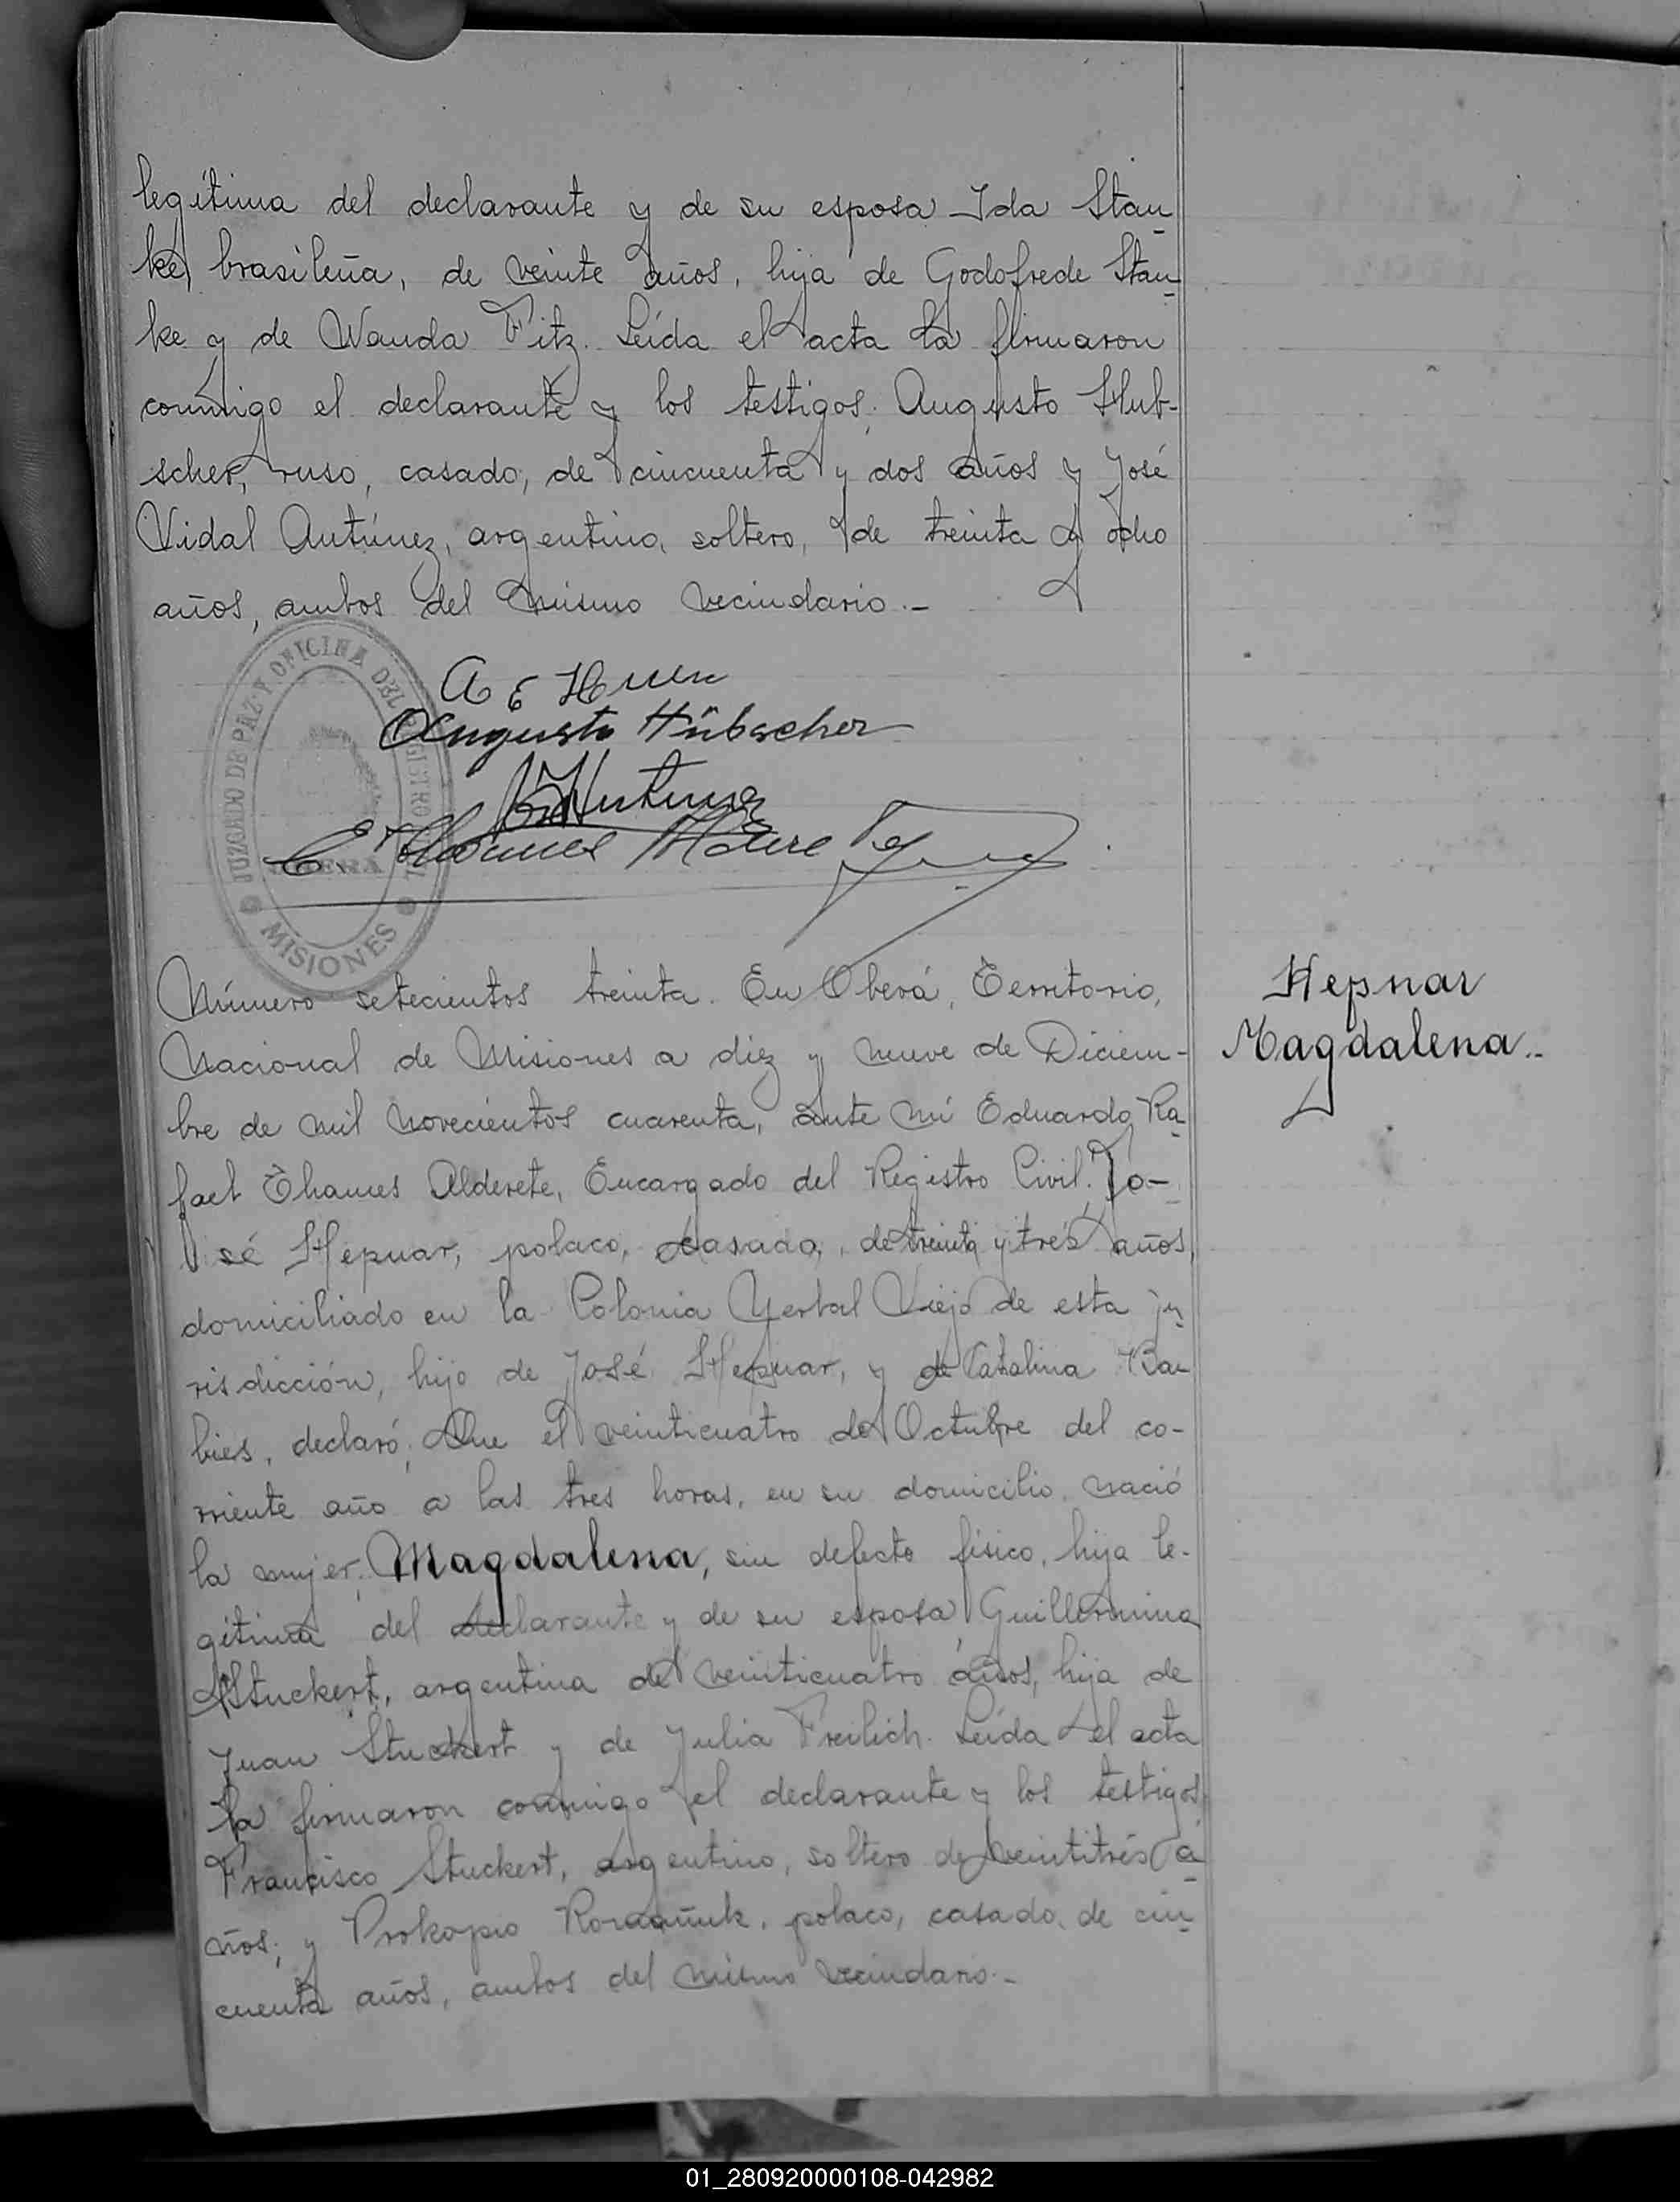 legítima del declarante y de su esposa Ida Stan
ke, brasileña, de veinte años, hija de Godofrede Stan
ke y de Wanda Fitz. Leída el acta la firmaron
conmigo el declarante y los testigos: Augusto Hub-
scher, ruso, casado, de cincuenta y dos años y José
Vidal Antúnez, argentino, soltero, de treinta y ocho
años, ambos del mismo vecindario.-
JUZGADO DE PAZ Y OFICINA DEL REGISTRO CIVIL
OBERÁ
MISIONES
Augusto Hübscher
Número setecientos treinta. En Oberá, Territorio,
Nacional de Misiones a diez y nueve de Diciem-
bre de mil novecientos cuarenta, ante mí Eduardo Ra
fael Thames Alderete, Encargado del Registro Civil. Jo-
sé Hepnar, polaco, casado, de treinta y tres años,
domiciliado en la Colonia Yerbal Viejo de esta ju
risdicción, hijo de José Hepnar, y de Catalina Ba
bies, declaró: Que el veinticuatro de Octubre del co-
rriente año a las tres horas, en su domicilio, nació
la mujer: Magdalena, sin defecto físico, hija le-
gítima del declarante y de su esposa Guillermina
Stuckert, argentina de veinticuatro años, hija de
Juan Stuckert y de Julia Freilich. Leída el acta
la firmaron conmigo el declarante y los testigos:
Francisco Stuckert, argentino, soltero de veintitrés a
ños; y Prokopio polaco, casado, de cin
cuenta años, ambos del mismo vecindario.-
Hepnar
Magdalena.-
01_280920000108-042982